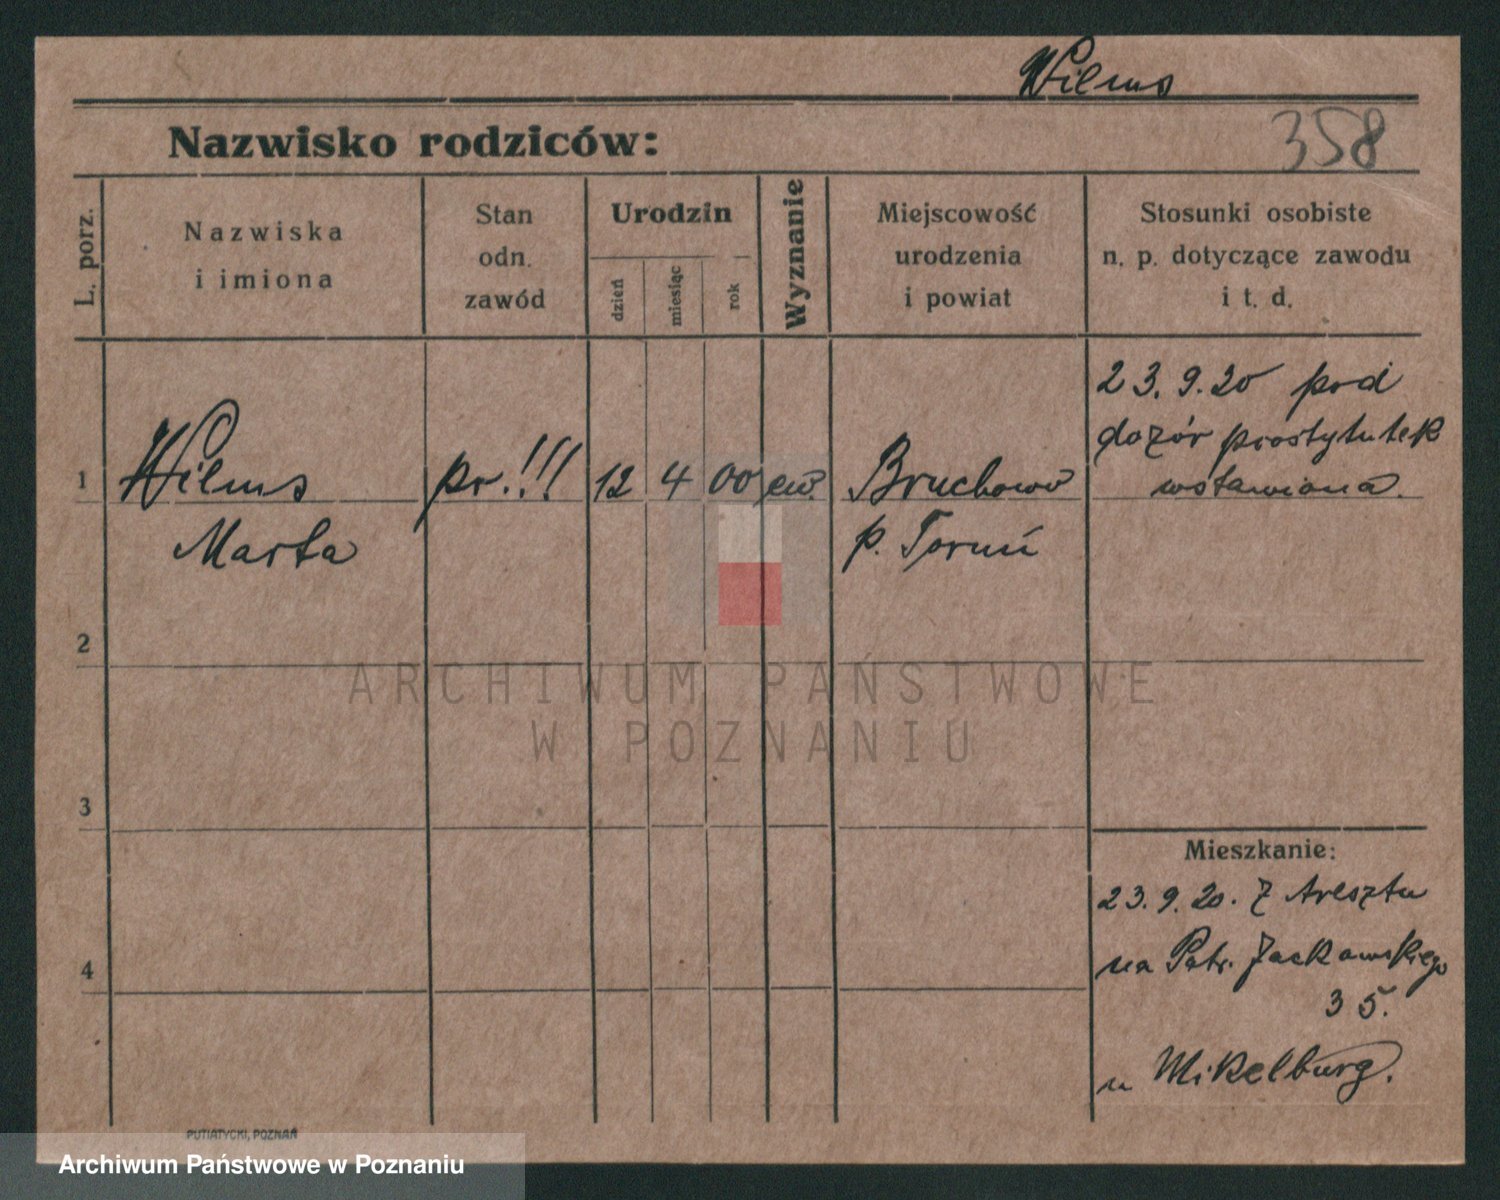 Wilms
Nazwisko rodziców:
358
L. porz.
Nazwiska
i imiona
Stan
odn.
zawód
Urodzin
dzień
miesiąc
rok
Wyznanie
Miejscowość
urodzenia
i powiat
Stosunki osobiste
n. p. dotyczące zawodu
i t. d.
1
Wilms
Marta
pr.!!!
12
4
00
ew.
Bruchowo
p. Toruń
23.9.20 pod
dozór prostytutek
wstawiona.
2
3
4
Mieszkanie:
23.9.20. Z Aresztu
na Patr. Jackowskiego
35.
u Mikelburg.
ARCHIWUM PAŃSTWOWE
W POZNANIU
PUTIATYCKI, POZNAŃ
Archiwum Państwowe w Poznaniu